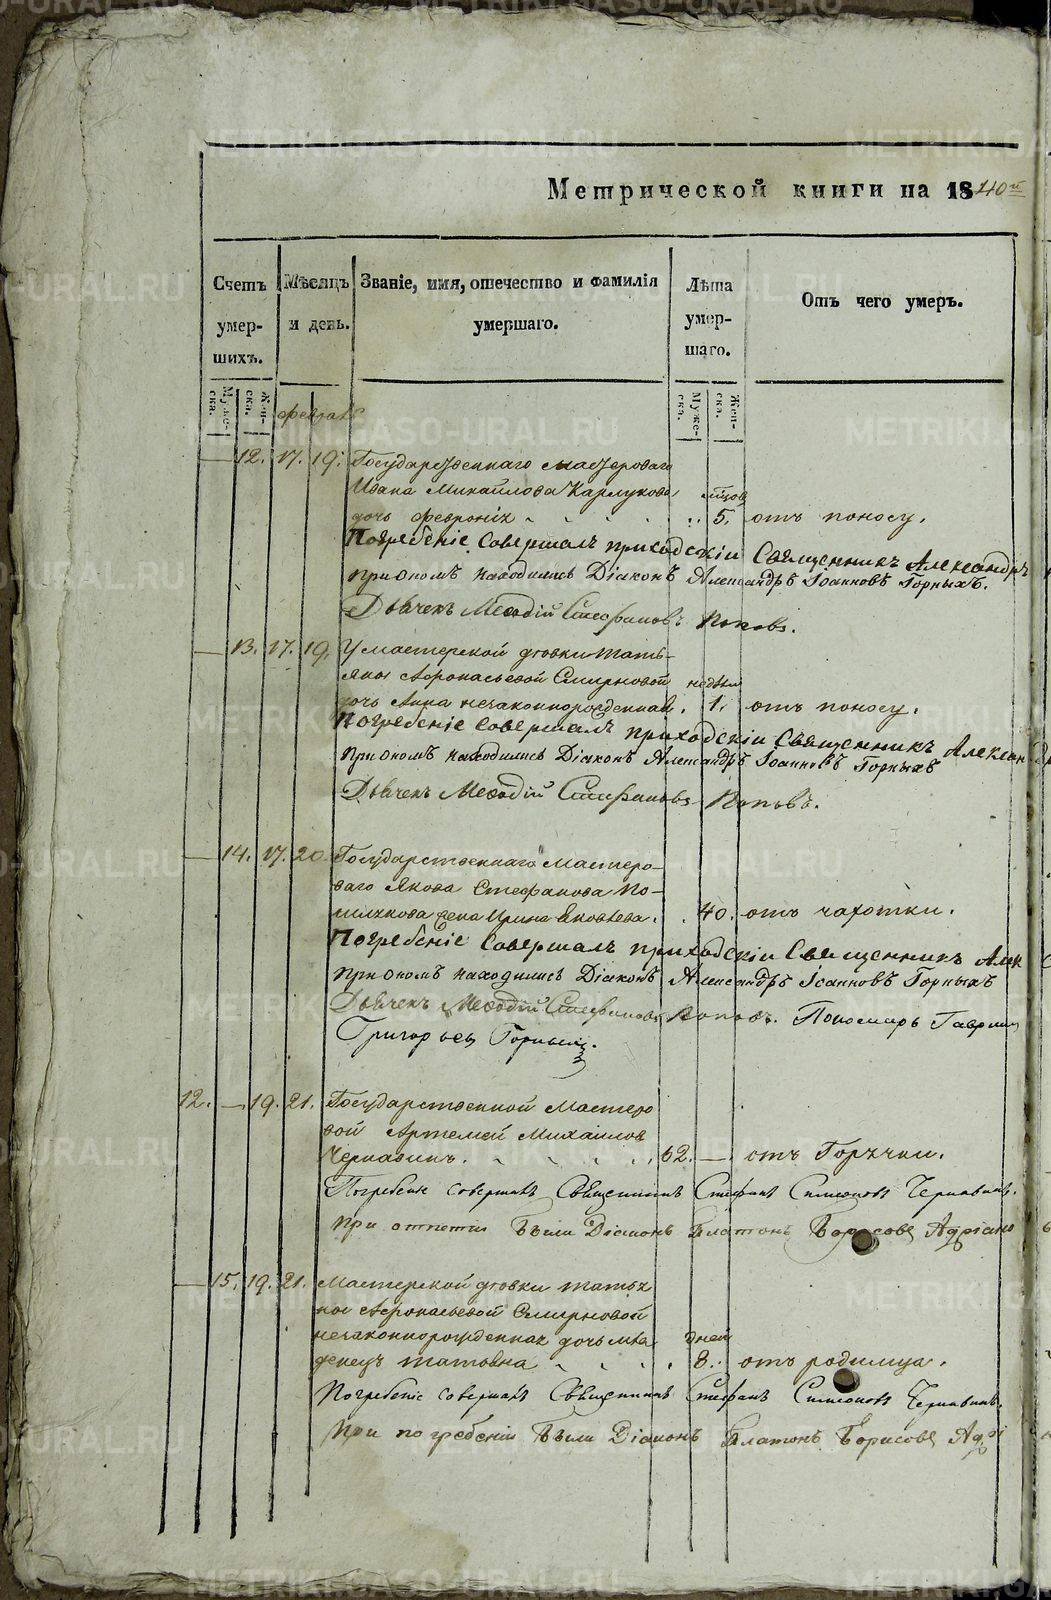 Метрической книги на 1840й
Счетъ умершихъ.
Мѣсяцъ и день.
Званіе, имя, отечество и фамилія умершаго.
Лѣта умершаго.
Отъ чего умеръ.
Мужеска.
Женска.
Мужеска.
Женска.
февраль
12. 17. 19. Государственнаго мастероваго
Ивана Михайлова Карлукова мѣсцов
дочь Феврониѧ 5. отъ поносу.
Погребеніе Совершалъ приходскіи Священникъ Александръ
При ономъ находились Діаконъ Александръ Іоанновъ Горныхъ.
Дьячекъ Меѳодій Стефановъ Поповъ.
13. 17. 19. У мастерской дѣвки Татья-
яны Афонасьевой Смирновой недѣли
дочь Анна незаконнорожденная. 1. отъ поносу.
Погребеніе Совершалъ приходскіи Священникъ Александръ
При ономъ находились Діаконъ Александръ Іоанновъ Горныхъ
Дьячекъ Меѳодій Стефановъ Поповъ.
14. 17. 20. Государственнаго Мастеро-
ваго Якова Стефанова По-
жена Ирина Яковлева. 40. отъ чахотки.
Погребеніе Совершалъ приходскіи Священникъ Алек
При ономъ находились Діаконъ Александръ Іоанновъ Горныхъ
Дьячекъ Меѳодій Стефановъ Поповъ. Пономарь Гаврил
Григорьев Горных.
12. — 19. 21. Государственной Мастеро
вой Артемей Михаилов
Чернавинъ. 62. — отъ Горячки.
Погребеніе совершалъ Священникъ Стефанъ Симеоновъ Чернавинъ.
При отпетіи Были Діаконъ Платонъ Борисовъ Адріано
— 15. 19. 21. Мастерской дѣвки татья
ны Афонасьевой Смирновой
незаконнорожденная дочь мла дней
денецъ татьяна 8. отъ родимца.
Погребеніе совершалъ Священникъ Стефанъ Симеоновъ Чернавинъ.
При погребеніи Были Діаконъ Платонъ Борисовъ Адрі
METRIKI.GASO-URAL.RU